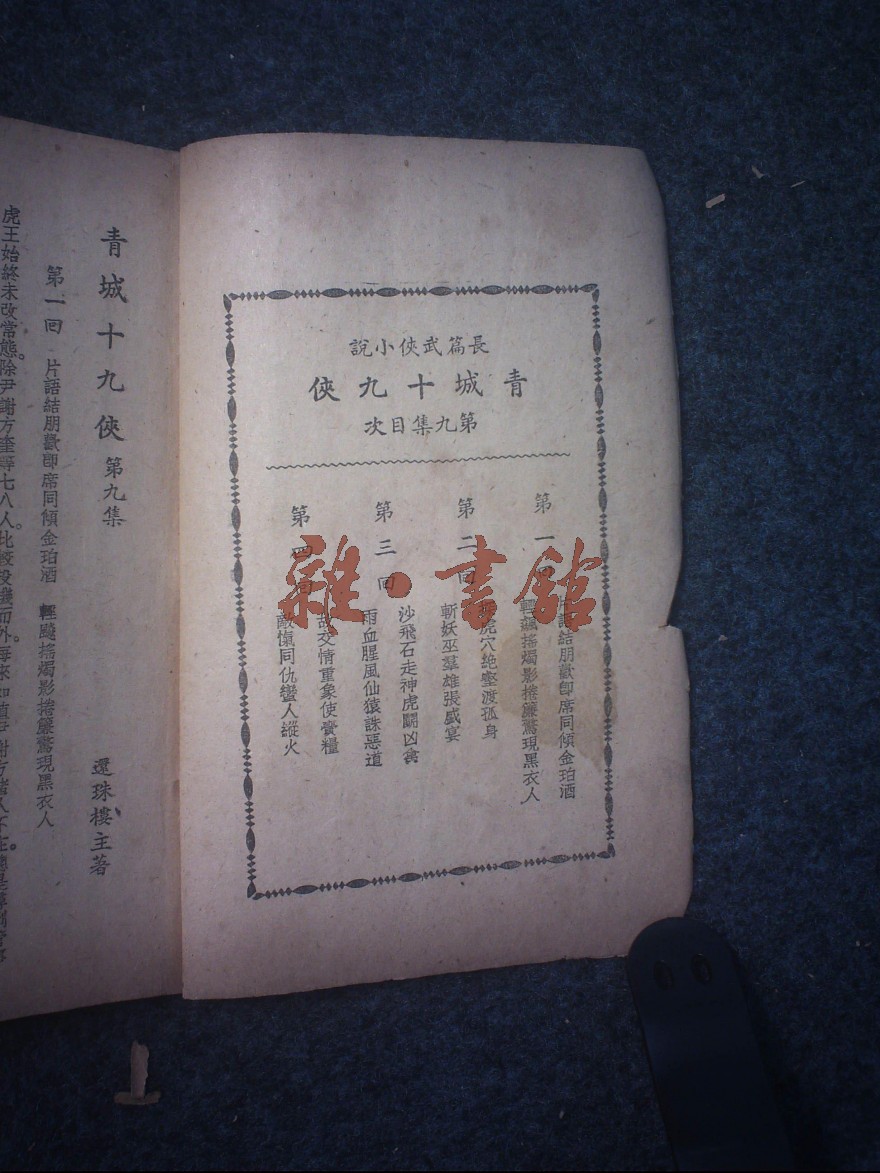 長篇武俠小說
青城十九俠
第九集目次
第一回
片語結朋歡卽席同傾金珀酒
輕颸搖燭影搴簾驚現黑衣人
第二回
虎穴絕壑渡孤身
斬妖巫羣雄張盛宴
第三回
沙飛石走神虎鬭凶禽
雨血腥風仙猿誅惡道
第四回
故交情重象使賫糧
敵愾同仇蠻人縱火
雜·書館
青城十九俠 第九集
還珠樓主著
第一回 片語結朋歡卽席同傾金珀酒 輕颸搖燭影搴簾驚現黑衣人
虎王始終未改常態。除尹謝方奎等七八人。比較投機而外。每來